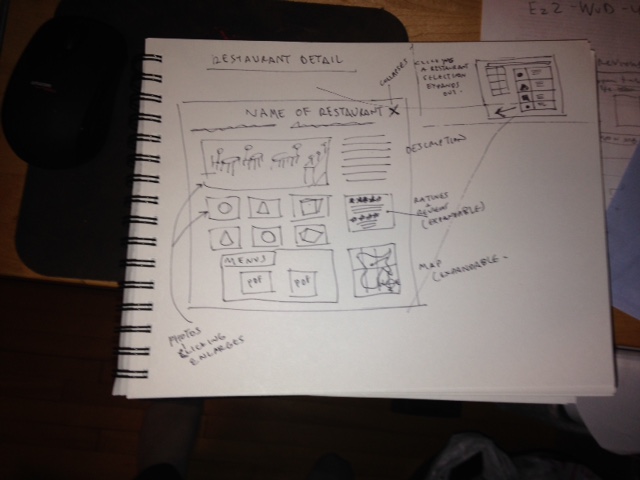 RESTAURANT DETAIL
CLICKING
A RESTAURANT
SELECTION
EXPANDS
OUT.
COLLAPSES
NAME OF RESTAURANT X
DESCRIPTION
RATINGS
&
REVIEWS
(EXPANDABLE)
MENUS
PDF PDF
MAP
(EXPANDABLE.
PHOTOS
CLICKING
ENLARGES